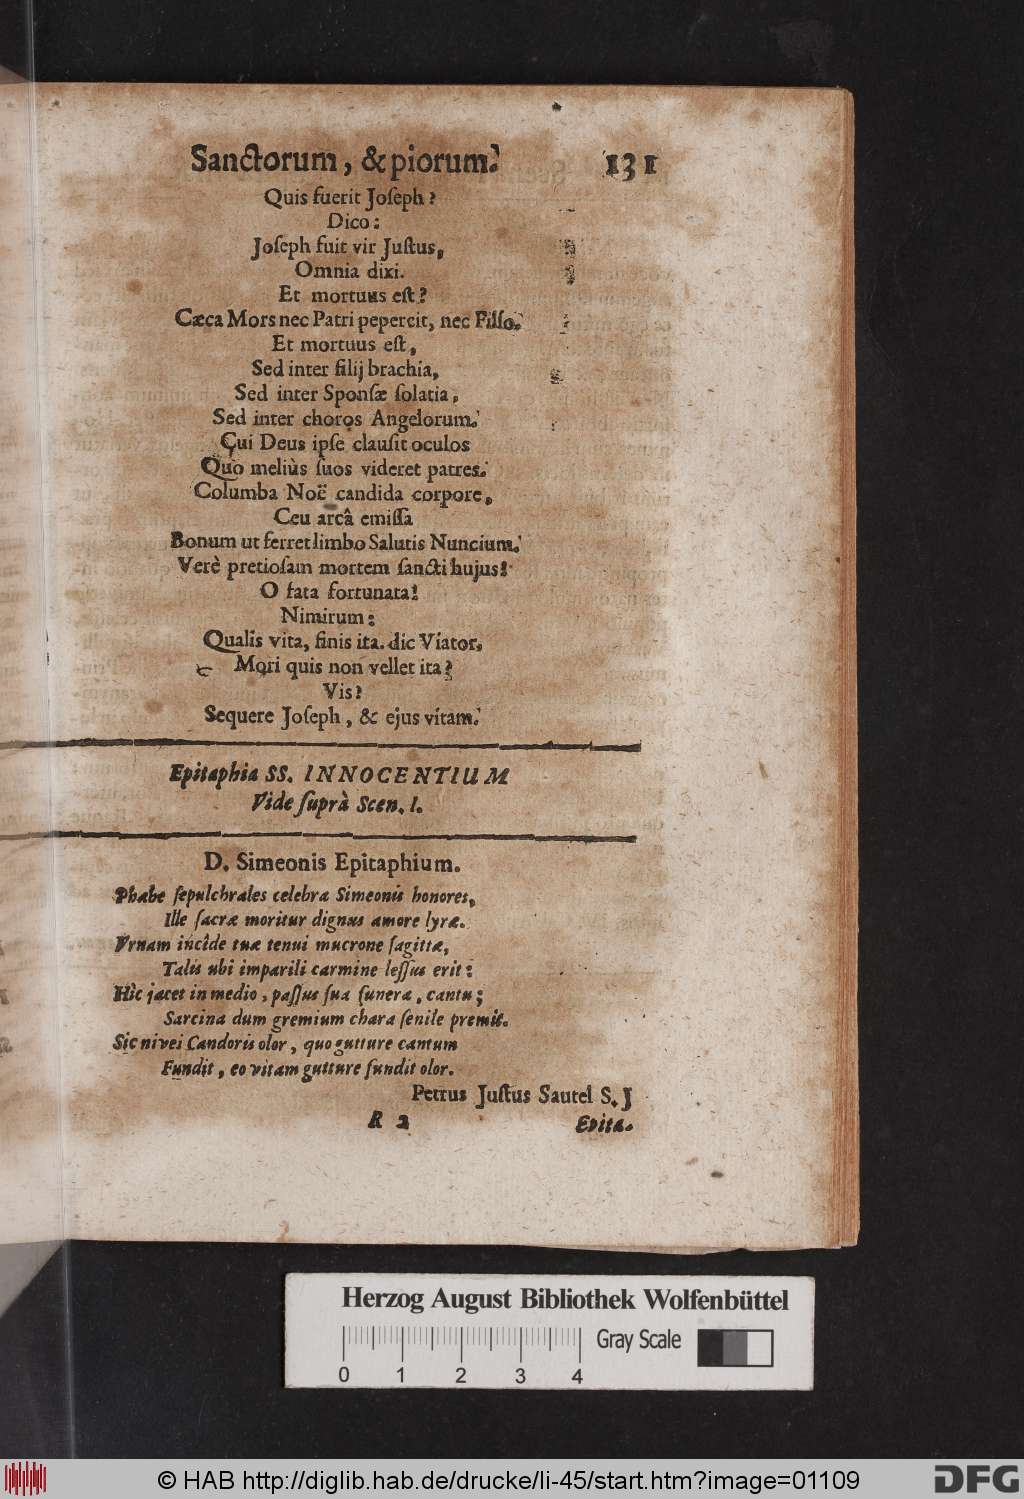 Sanctorum, & piorum. 131
Quis fuerit Joſeph?
Dico:
Joſeph fuit vir Juſtus,
Omnia dixi.
Et mortuus eſt?
Cæca Mors nec Patri pepercit, nec Filio.
Et mortuus eſt,
Sed inter filij brachia,
Sed inter Sponſæ ſolatia,
Sed inter choros Angelorum.
Cui Deus ipſe clauſit oculos
Quò meliùs ſuos videret patres.
Columba Noë candida corpore,
Ceu arcâ emiſſa
Bonum ut ferret limbo Salutis Nuncium.
Verè pretioſam mortem ſancti hujus!
O fata fortunata!
Nimirum:
Qualis vita, finis ita. dic Viator,
Mori quis non vellet ita?
Vis?
Sequere Joſeph, & ejus vitam.
Epitaphia SS. INNOCENTIUM
Vide ſuprà Scen. I.
D. Simeonis Epitaphium.
Phœbe ſepulchrales celebra Simeonis honores,
Ille ſacræ moritur dignus amore lyræ.
Vrnam incîde tuæ tenui mucrone ſagittæ,
Talis ubi imparili carmine leſſus erit:
Hic jacet in medio, paſſus ſua funera, cantu;
Sarcina dum gremium chara ſenile premit.
Sic nivei Candoris olor, quo gutture cantum
Fundit, eo vitam gutture fundit olor.
Petrus Juſtus Sautel S. J
R 2 Epita-
Herzog August Bibliothek Wolfenbüttel
Gray Scale
0 1 2 3 4
© HAB http://diglib.hab.de/drucke/li-45/start.htm?image=01109
DFG